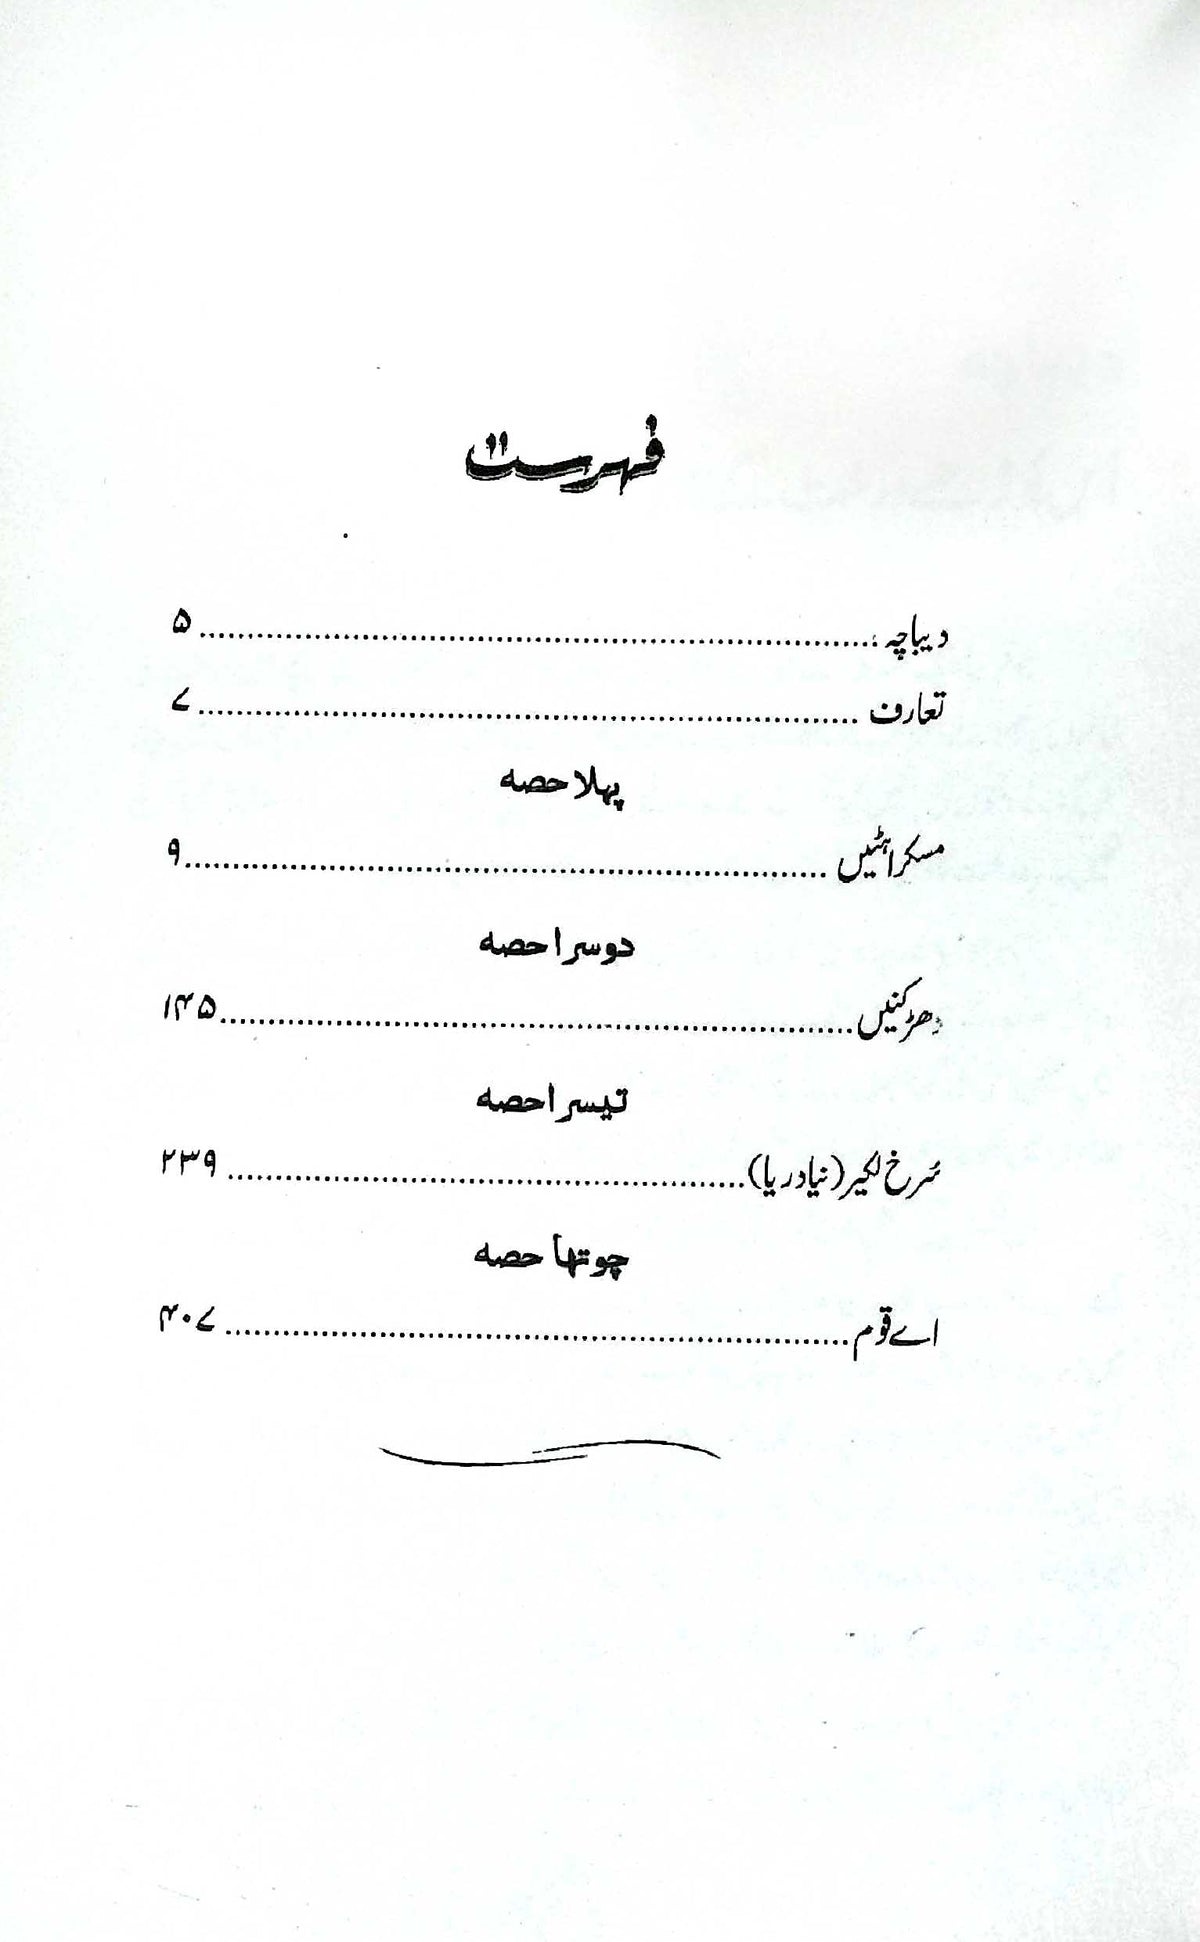 فہرست
دیباچہ ........................................ ۵
تعارف ........................................ ۷
پہلا حصہ
مسکراہٹیں ........................................ ۹
دوسرا حصہ
دھڑکنیں ........................................ ۱۴۵
تیسرا حصہ
سُرخ لکیر (نیا دریا) ........................................ ۲۳۹
چوتھا حصہ
اے قوم ........................................ ۴۰۷